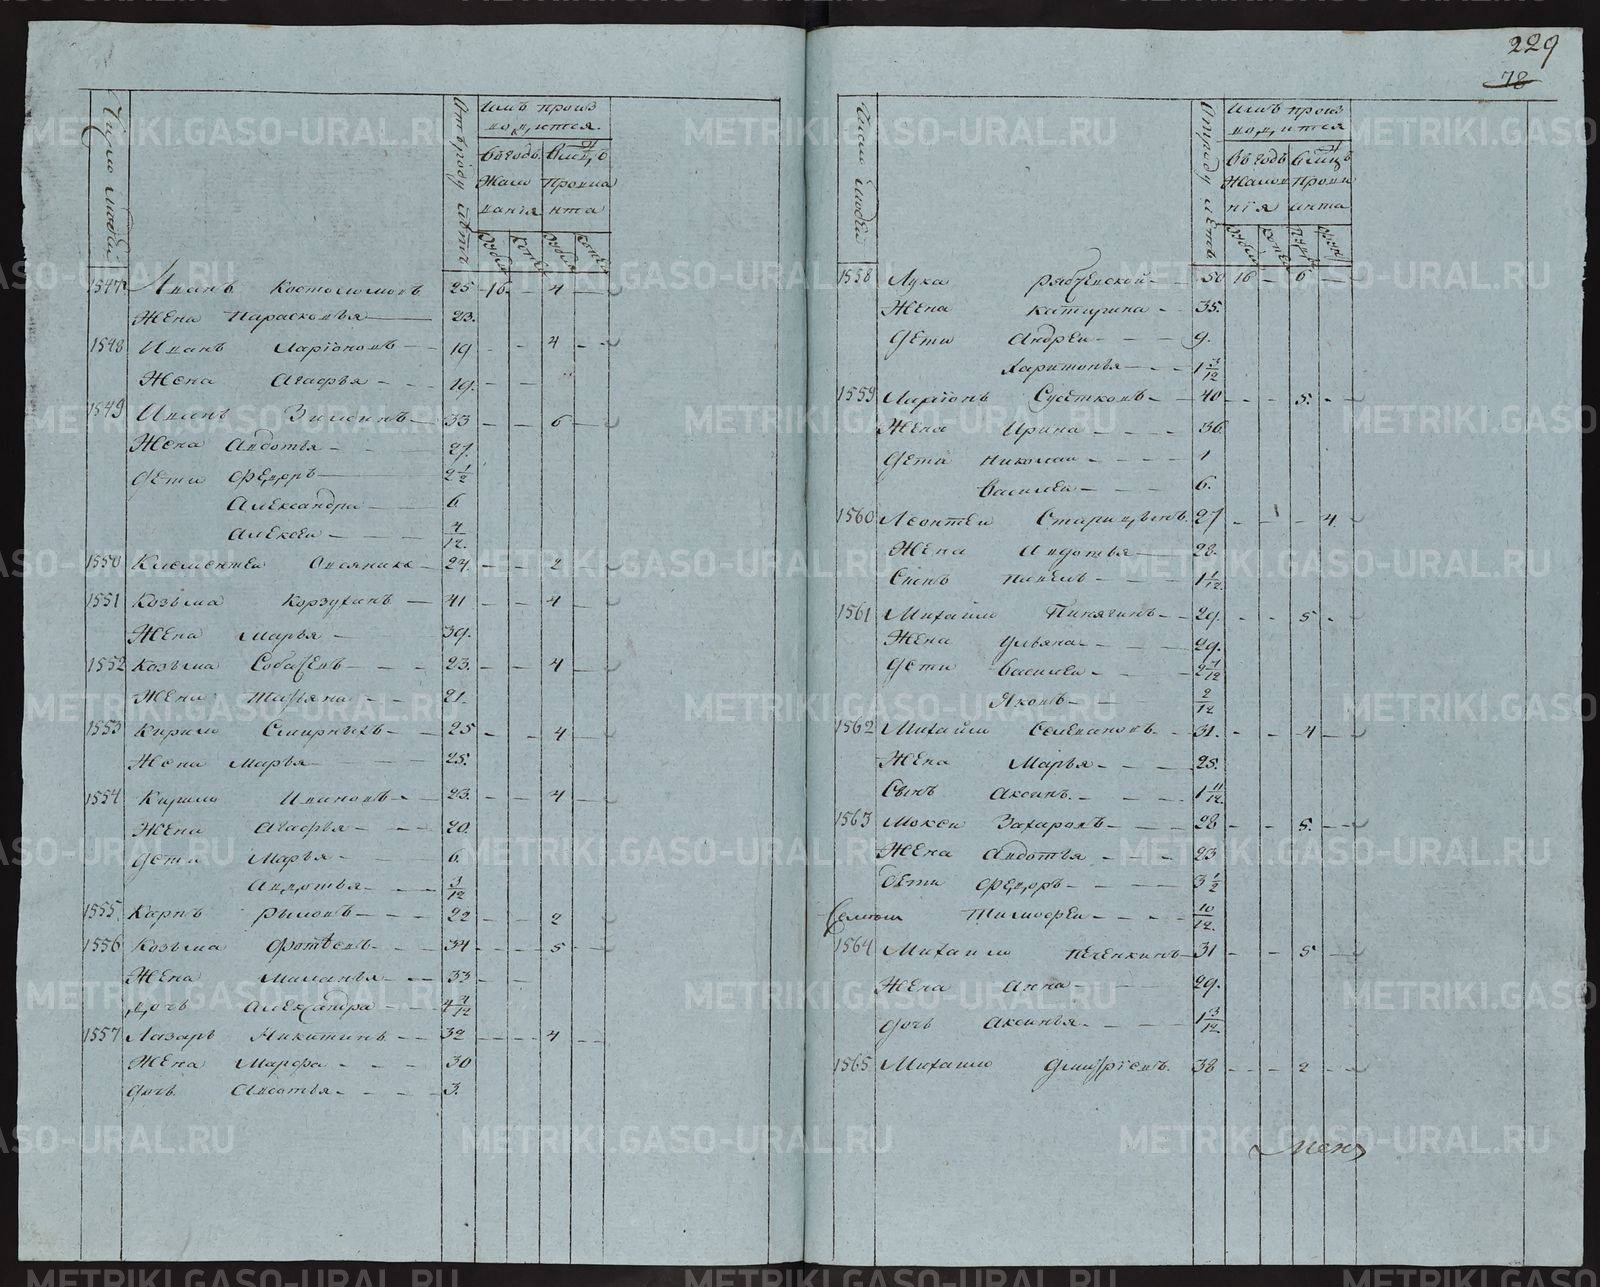 229
78
Число людей
Отъ роду лѣтъ
имъ произ
водится.
въ годъ
жало
ванія
въ мцъ
провиа
нта
рубли
копѣ
рубли
копѣ
1547 Иванъ Костоломовъ 25 - 16 - 4 -
Жена Парасковья 23.
1548 Иванъ Ларіоновъ 19 - - 4 -
Жена Агафья - - 19. - -
1549 Зиминъ 33 - - 6 -
Жена Авдотья - - 27.
Дети Федоръ 2 1/2
Александра 6
Алексеи 4/12.
1550 Клементеи Овсяников 24. - - 2 -
1551 Козьма Корзухинъ 41 - - 4 -
Жена Марья 39.
1552 Козьма Собаѣевъ 23. - - 4 -
Жена Татьяна 21.
1553 Кирило Смирныхъ 25 - - 4 -
Жена Марья 25.
1554 Кирило Ивановъ 23. - - 4 -
Жена Агафья 20.
Дети Марья 6.
Авдотья 3/12
1555 Карпъ Рыловъ 22 - - 2
1556 Козьма Фотѣевъ 34 - - 5 -
Жена Маланья 33 - -
Дочь Александра 4 4/12
1557 Лазарь Никитинъ 32 - - 4 -
Жена Марфа 30
Дочь Авдотья 3.
Число людей
Отроду лѣтъ
имъ произ
водится
въ годъ
жалов
нія
въ мцъ
прови
анта
рубли
копѣ
1558 Лука 50 16 - 6 -
Жена Катирина 35.
Дети Андреи 9.
Харитонья 1 3/12
1559 Ларіонъ Суетновъ 40 - - 5. -
Жена Ирина 36.
Дети Николаи 1
Василеи 6.
1560 Леонтеи Старицынъ 27 - - - 4
Жена Авдотья 28.
Сынъ Павелъ 1 1/12.
1561 Михаило Пинягинъ 29. - - 5 -
Жена Ульяна 29.
Дети Василеи 2 1/12
Яковъ 2/12
1562 Михаило Селивановъ 31. - - 4 -
Жена Марья 25.
Сынъ Аксинъ. 1 11/12.
1563 Мокеи Захаровъ 28 - - 5. -
Жена Авдотья 23
Дети Федоръ 3 1/2
Тимофеи 10/12.
1564 Михаило Печенкинъ 31 - - 5 -
Жена Анна 29.
Дочь Аксинья 1 3/12
1565 Михаило Дмитріевъ. 38 - - 2 -
METRIKI.GASO-URAL.RU